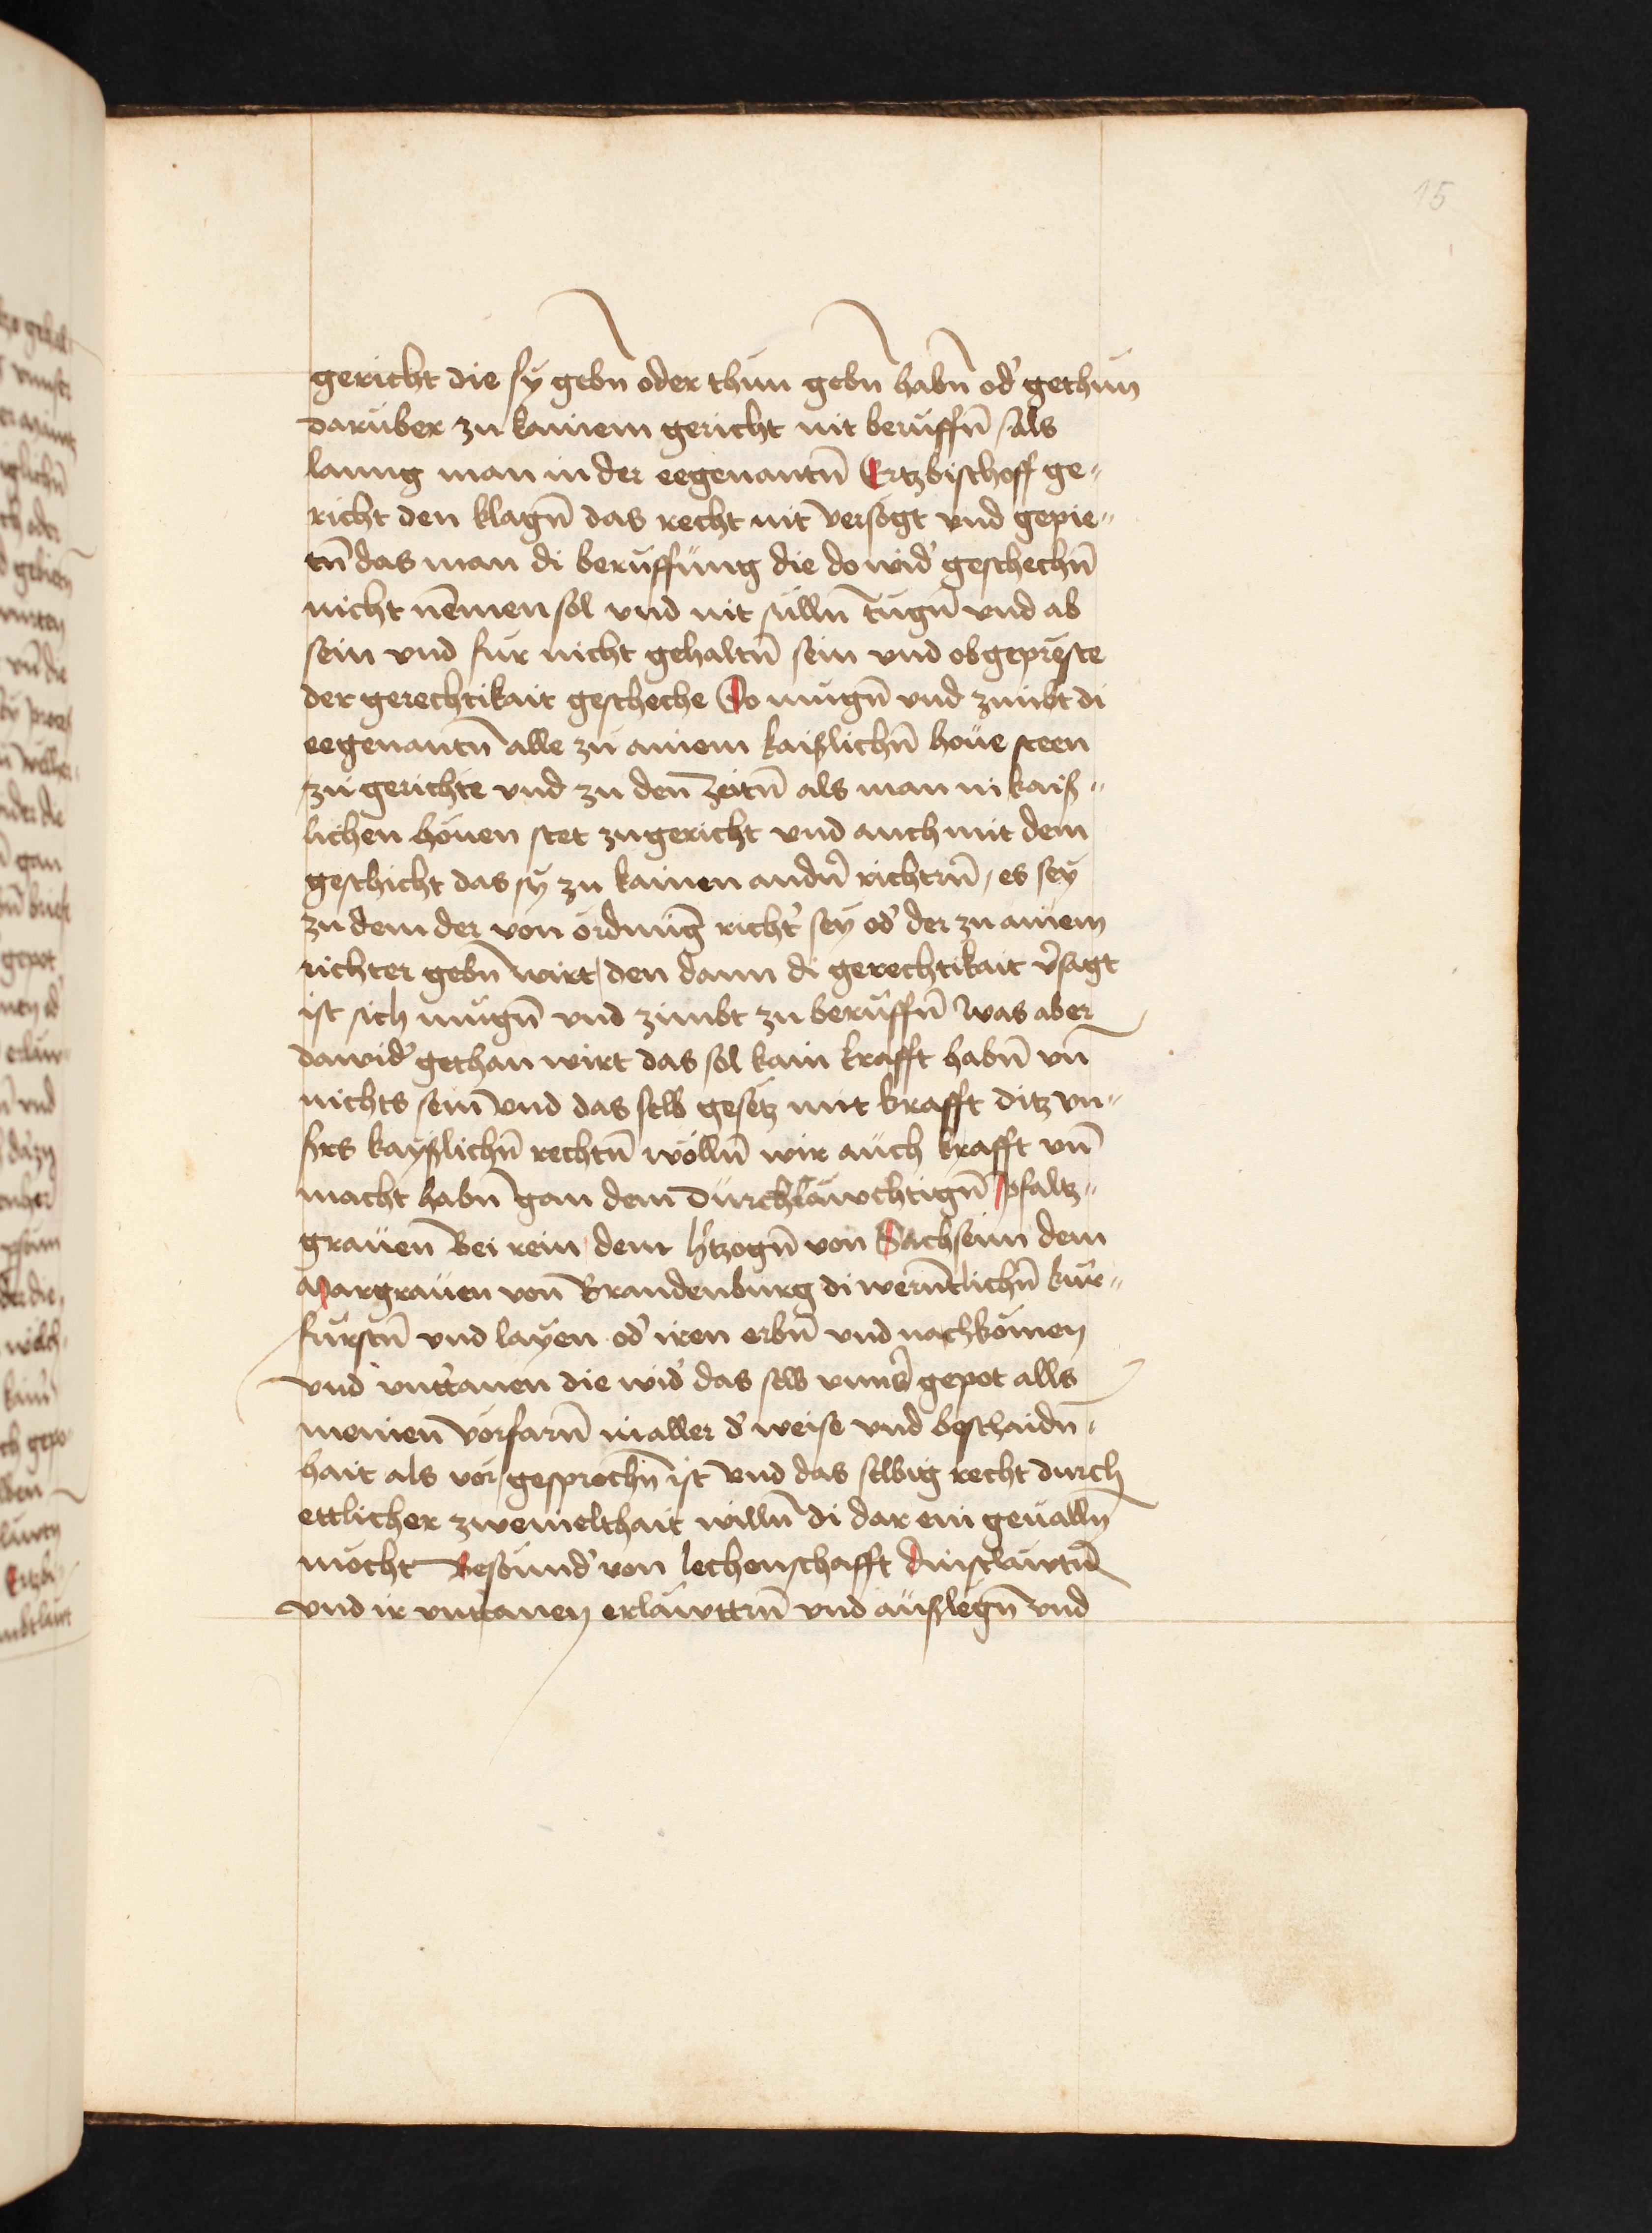 15
gericht die sy gebn̄ oder thun gebn̄ habn̄ od' gethun
daruber zu kainem gericht nit beruffn̄ / als
lanng man in der eegenantn̄ Ertzbischoff ge„
richt den klagn̄ das recht nit versogt vnd gepie„
tn̄ das man di beruffung die do wid' geschechn̄
nicht nēmen sol vnd nit sulln̄ tugn̄ vnd ab
sein vnd fur nicht gehaltn̄ sein vnd ob gepreste
der gerechtikait gescheche So mugn̄ vnd zimbt di
eegenantn̄ alle zu ainem kaißlichn̄ houe steen
zu gerichte vnd zu den̄ zeitn̄ als man in kaiß„
lichen houen stet zu gericht vnd auch mit dem
geschicht das sy zu kainen andn̄ richtrn̄ / es sey
zu dem der von ordnūg richt' sey od' der zu ainem
richter gebn̄ wirt / den dann di gerechtikait v̄sagt
ist sich mugn̄ vnd zimbt zu beruffn̄ Was aber
dawid' gethan wirt das sol kain krafft habn̄ vn̄
nichts sein vnd das selb gesetz mit krafft ditz vn„
srs kayßlichn̄ rechtn̄ wolln̄ wir auch krafft vn̄
macht habn̄ gan dem durchlawchtign̄ pfaltz„
grauen Bei rein / dem h'tzogn̄ von Sachsenn dem
Margrauen von Brandenburg di wern̄tlichn̄ kur„
furstn̄ vnd layen od' iren erbn̄ vnd nachkomen
vnd vntt'anen die wid' das selb vnns' gepot alls
meinen vorfarn̄ in aller d' weise vnd beschaidn̄„
hait als vor / gesprochn̄ ist vnd das selbig recht durch
ettlicher zweinelthait willn̄ di dar ein geualln̄
mocht Besound' von lechenschafft dinstlawtn̄
vnd ir vnttanen erlawttrn̄ vnd außlegn̄ vnd